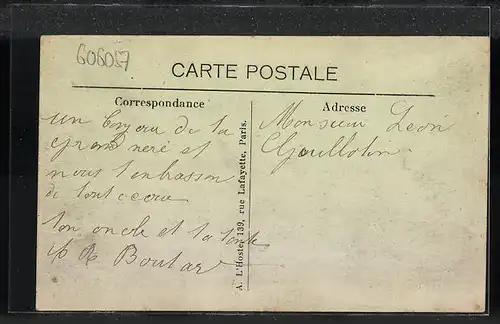 606057
CARTE POSTALE
Correspondance
un bonjour de ta
grand mere et
nous t'enbrasson
de tout coeur
ton oncle et ta tante
Boutar
A. L'Hoste, 139, rue Lafayette, Paris.
Adresse
Monsieur Leon